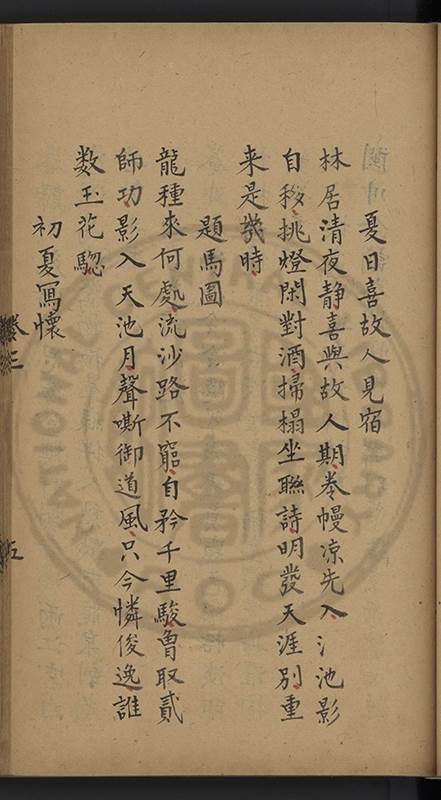 夏日喜故人見宿
林居清夜静喜與故人期捲幔凉先入氵池影
自移挑燈閑對酒掃榻坐聯詩明發天涯別重
来是幾時
題馬圖
龍種來何處流沙路不窮自矜千里駿曽取貳
師功影入天池月聲嘶御道風只今憐俊逸誰
数玉花驄
初夏寫懷